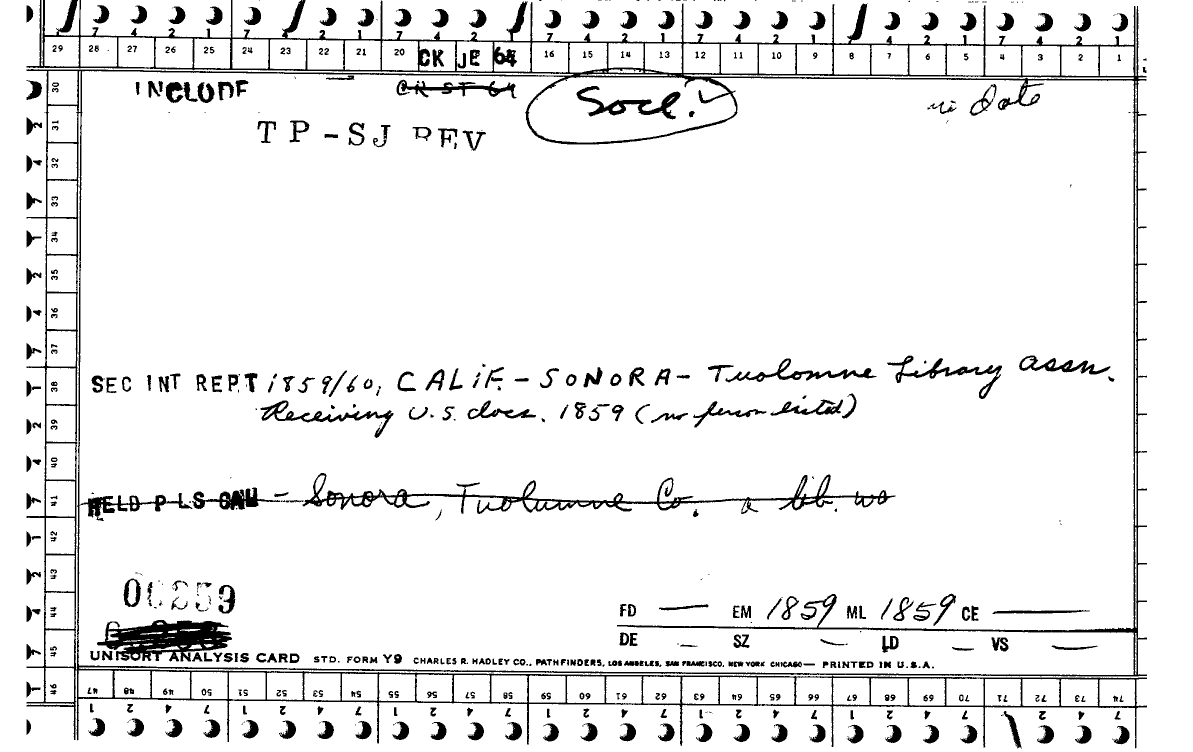 7 4 2 1 7 4 2 1 7 4 2 1 7 4 2 1 7 4 2 1 7 4 2 1 7 4 2 1
29 28 27 26 25 24 23 22 21 20 CK JE 64 16 15 14 13 12 11 10 9 8 7 6 5 4 3 2 1
30 INCLUDE CR ST 64 Socl. date
31 TP-SJ REV
32
33
34
35
36
37
38 SEC INT REPT 1859/60, CALIF. - SONORA - Tuolomne Library Assn.
39 Receiving U.S. docs. 1859 (no person listed)
40
41 HELD P LS CAU - Sonora, Tuolumne Co. a lib. wo
42
43 00259
44 FD — EM 1859 ML 1859 CE —
45 DE — SZ — LD — VS —
UNISORT ANALYSIS CARD STD. FORM Y9 CHARLES R. HADLEY CO., PATHFINDERS, LOS ANGELES, SAN FRANCISCO, NEW YORK CHICAGO — PRINTED IN U.S.A.
46 47 48 49 50 51 52 53 54 55 56 57 58 59 60 61 62 63 64 65 66 67 68 69 70 71 72 73 74
1 2 4 7 1 2 4 7 1 2 4 7 1 2 4 7 1 2 4 7 1 2 4 7 1 2 4 7